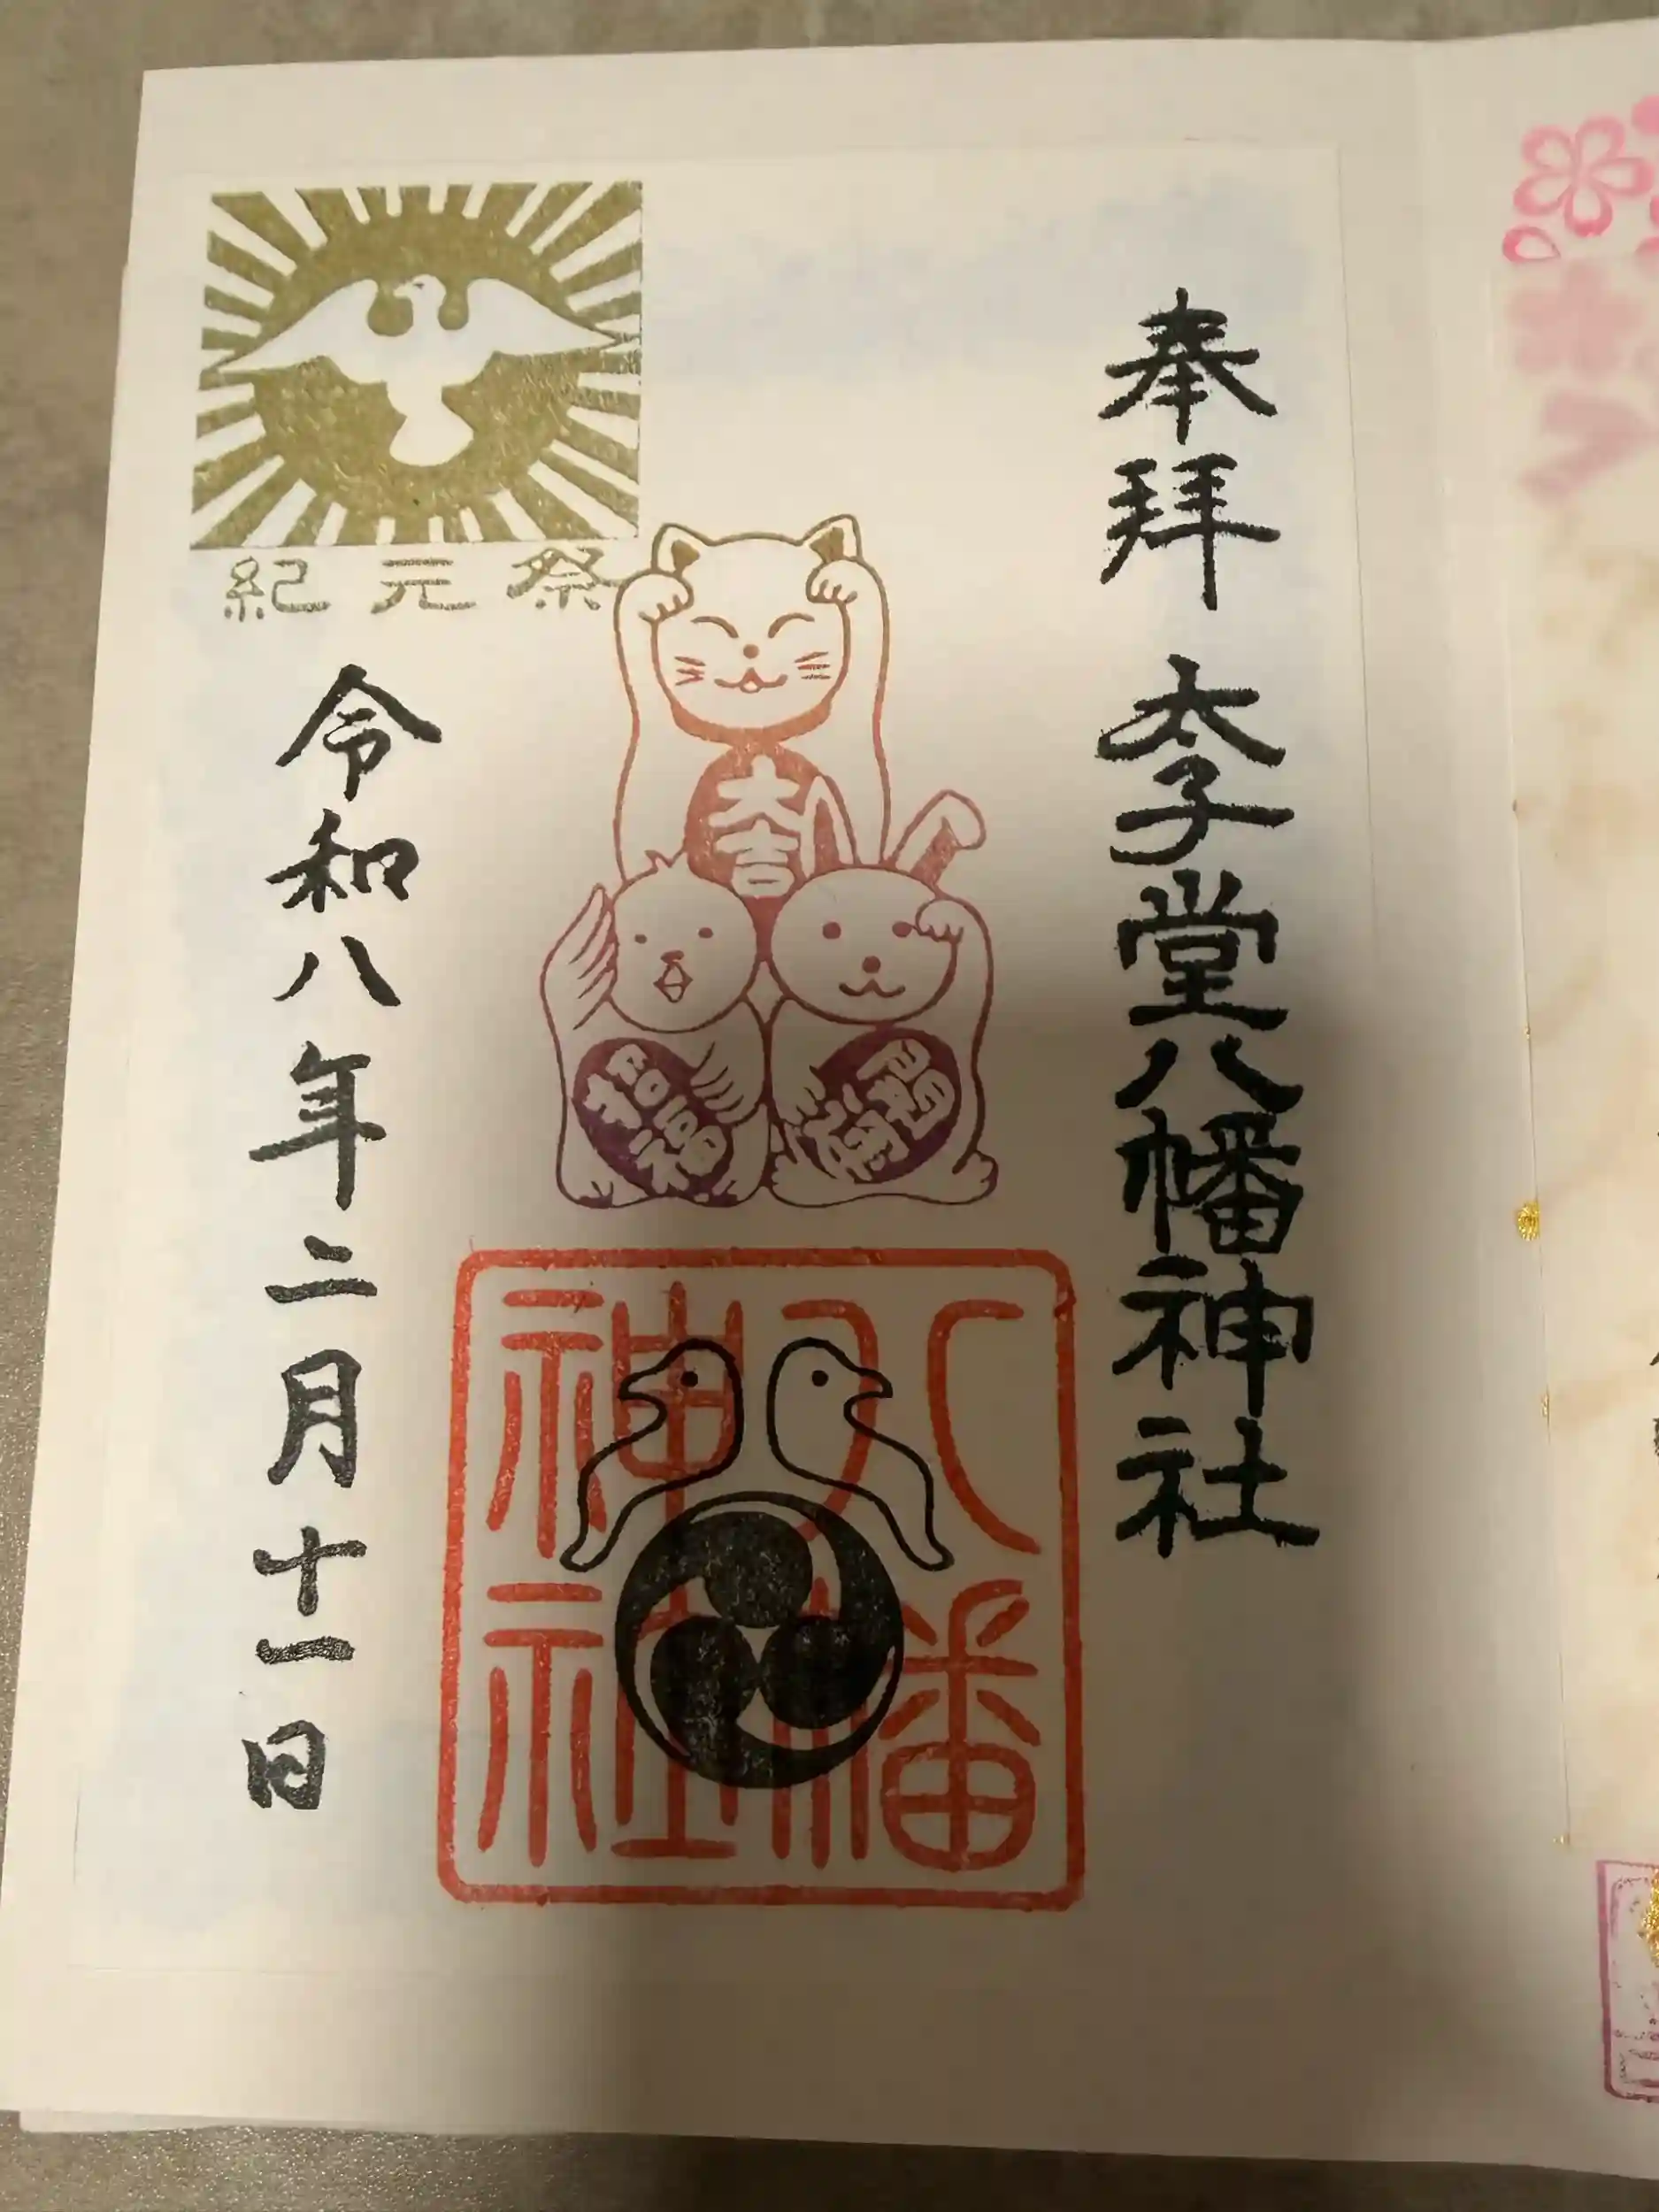 奉拝 太子堂八幡神社
大吉
開運
招福
八幡
神社
紀元祭
令和八年二月十一日